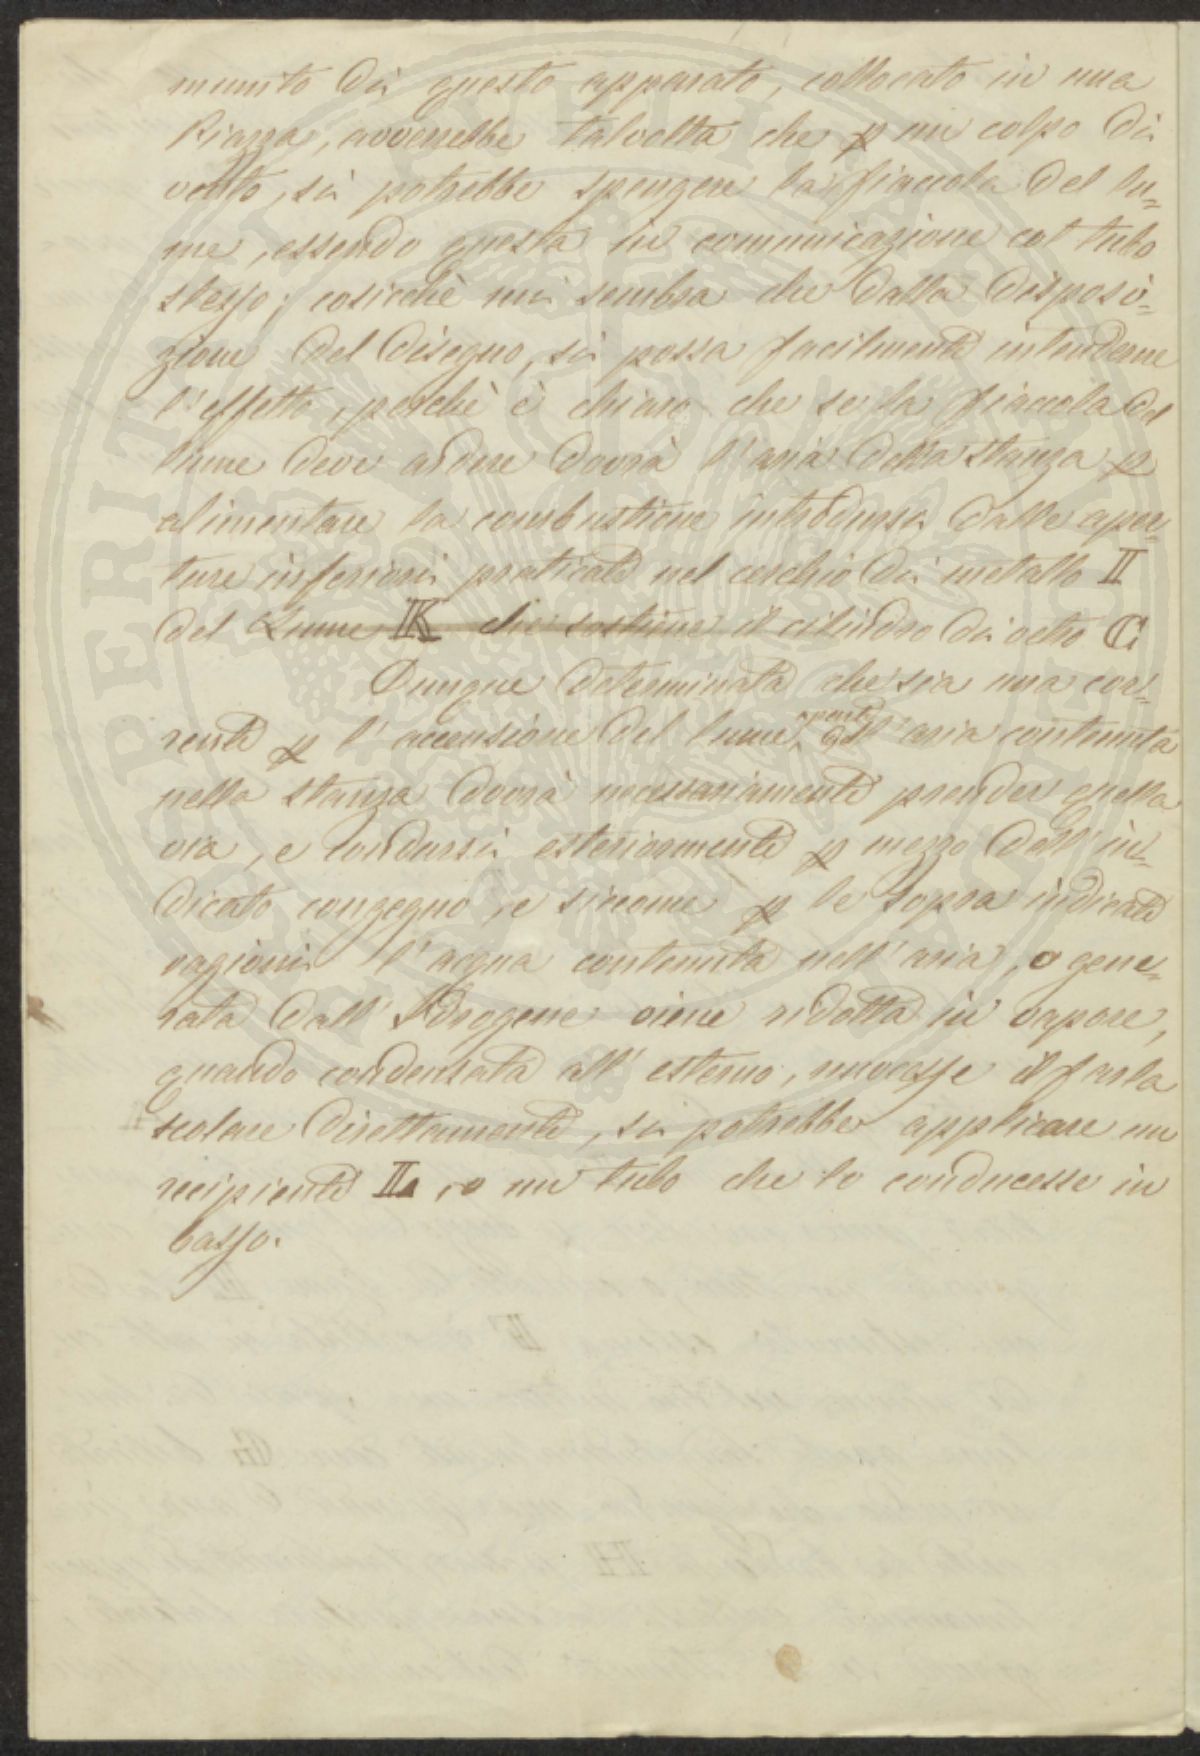 munito di questo apparato, collocato in una
Piazza, avverrebbe talvolta che p un colpo di
vento, si potrebbe spengere la fiaccola del lu=
me, essendo questa in comunicazione col tubo
stesso; cosicchè mi sembra che dalla disposi=
zione del disegno, si possa facilmente intenderne
l'effetto, perchè è chiaro che se la fiaccola del
lume deve ardere dovrà l'aria della stanza p
alimentare la combustione introdursi dalle aper=
ture inferiori praticate nel cerchio di metallo I
del Lume K che sostiene il cilindro di vetro C
Dunque determinata che sia una cor=
rente p l'accensione del lume, parte dell'aria contenuta
nella stanza dovrà necessariamente prender quella
via, e condursi esteriormente p mezzo dell'in=
dicato congegno, e siccome p le sopra indicate
ragioni l'acqua contenuta nell'aria, o gene=
rata dall'Idrogene viene ridotta in vapore,
quando condensata all'esterno, nuocesse il farla
scolare direttamente, si potrebbe applicare un
recipiente L, o un tubo che lo conducesse in
basso.
PERITI